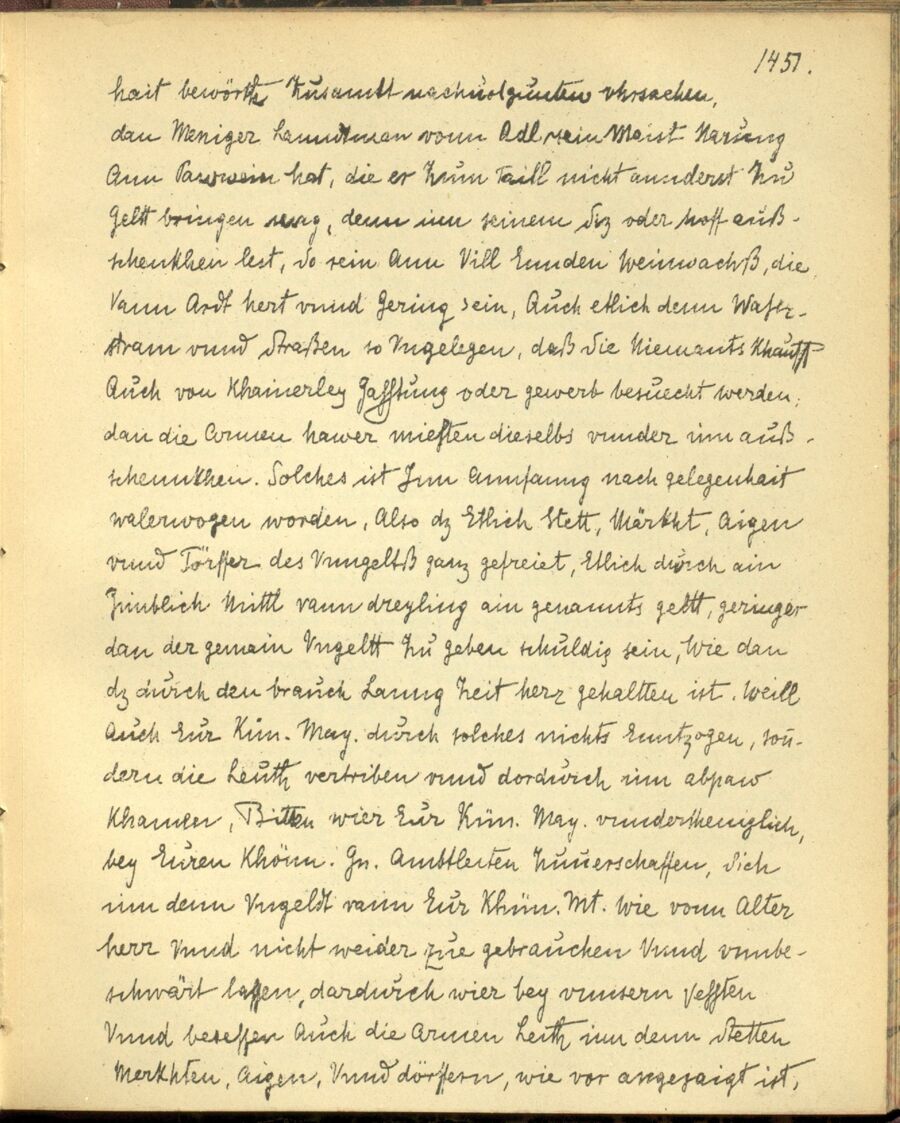 1451.
hait bewörth Zusambt nachuolgunten vhrsachen,
dan Weniger Lanndtman vonn Adl sein Maist Narung
Ann Pauwein hat, die er Zum Taill nicht annderst Zu
Geltt bringen mag, denn inn seinem Siz oder hoff auß-
schenkhen lest, So sein Ann Vill Ennden Weinwachß, die
Vann Ardt hert vnnd Gering sein, Auch etlich denn Wasser-
stram vnnd Straßen so Vngelegen, daß Sie Niemants Khaufft
Auch von Khainerley Gasstung oder gewerb besuecht werden,
dan die Armen hawer miesten dieselbs vnnder inn auß-
schennkhen. Solches ist Inn Annfanng nach gelegenhait
walerwogen worden, Also dz Etlich Stett, Märkht, Aigen
vnnd Törffer des Vnngeltß ganz gefreiet, Etlich durch ain
Zimblich Mittl vann dreyling ain genannts geltt, geringer
dan der gemain Vngeltt Zu geben schuldig sein, Wie dan
dz durch den brauch Lanng Zeit herz gehaltten ist. Weill
Auch Eur Kün. May. durch solches nichts Enntzogen, son-
dern die Leuth vertriben vnnd dordurch inn abpaw
Khamen, Bitten wier Eur Kün. May. vnndertheniglich,
bey Euren Khönn. Gn. Ambtleiten Zuuerschaffen, Sich
inn denn Vngeldt vann Eur Khün. Mt. Wie vonn Alter
herr Vnnd nicht weider zue gebrauchen Vnnd vnnbe-
schwärt lassen, dardurch wier bey vnnsern Vessten
Vnnd besessen Auch die Armen Leith inn denn Stetten
Merkhten, Aigen, Vnnd dörffern, wie vor angezaigt ist,